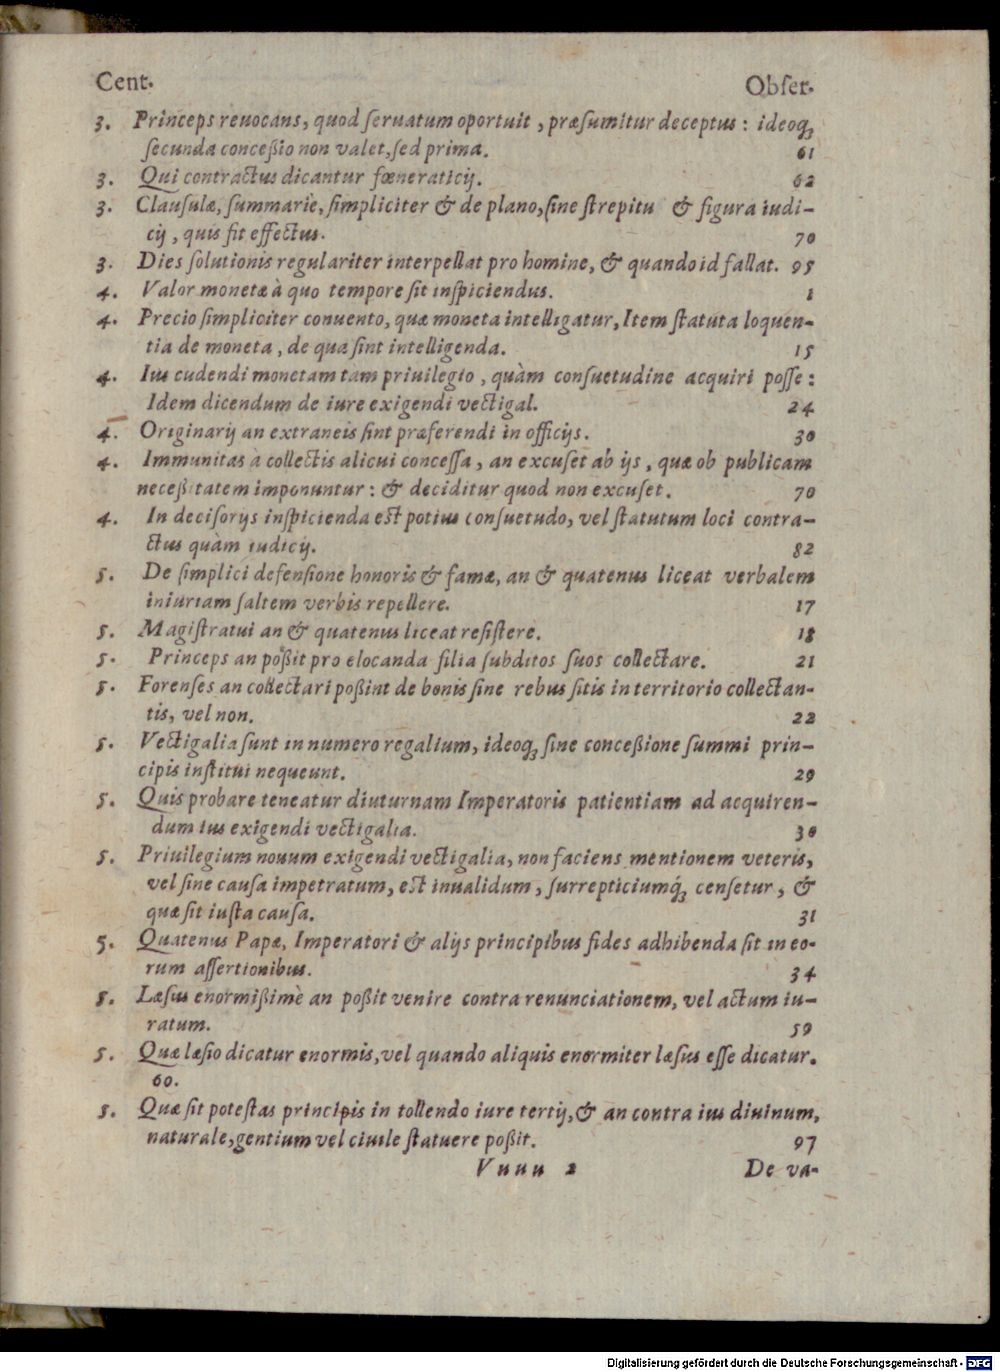 Cent. Obſer.
3. Princeps reuocans, quod ſeruatum oportuit, præſumitur deceptus: ideoq́ꝫ
ſecunda conceßio non valet, ſed prima. 61
3. Qui contractus dicantur fœneraticij. 62
3. Clauſulæ, ſummariè, ſimpliciter & de plano, ſine ſtrepitu & figura iudi-
cij, quis ſit effectus. 70
3. Dies ſolutionis regulariter interpellat pro homine, & quando id fallat. 95
4. Valor monetæ à quo tempore ſit inſpiciendus. 1
4. Precio ſimpliciter conuento, quæ moneta intelligatur, Item ſtatuta loquen-
tia de moneta, de qua ſint intelligenda. 15
4. Ius cudendi monetam tam priuilegio, quàm conſuetudine acquiri poſſe:
Idem dicendum de iure exigendi vectigal. 24
4. Originarij an extraneis ſint præferendi in officijs. 30
4. Immunitas à collectis alicui conceſſa, an excuſet ab ijs, quæ ob publicam
neceßitatem imponuntur: & deciditur quod non excuſet. 70
4. In deciſorijs inſpicienda est potius conſuetudo, vel ſtatutum loci contra-
ctus quàm iudicij. 82
5. De ſimplici defenſione honoris & famæ, an & quatenus liceat verbalem
iniuriam ſaltem verbis repellere. 17
5. Magiſtratui an & quatenus liceat reſiſtere. 18
5. Princeps an poßit pro elocanda filia ſubditos ſuos collectare. 21
5. Forenſes an collectari poßint de bonis ſine rebus ſitis in territorio collectan-
tis, vel non. 22
5. Vectigalia ſunt in numero regalium, ideoqꝫ ſine conceßione ſummi prin-
cipis inſtitui nequeunt. 29
5. Quis probare teneatur diuturnam Imperatoris patientiam ad acquiren-
dum ius exigendi vectigalia. 30
5. Priuilegium nouum exigendi vectigalia, non faciens mentionem veteris,
vel ſine cauſa impetratum, est inualidum, ſurrepticiumq́ꝫ cenſetur, &
quæ ſit iuſta cauſa. 31
5. Quatenus Papæ, Imperatori & alijs principibus fides adhibenda ſit in eo-
rum aſſertionibus. 34
5. Læſus enormißimè an poßit venire contra renunciationem, vel actum iu-
ratum. 59
5. Quæ læſio dicatur enormis, vel quando aliquis enormiter læſus eſſe dicatur.
60.
5. Quæ ſit poteſtas principis in tollendo iure tertij, & an contra ius diuinum,
naturale, gentium vel ciuile ſtatuere poßit. 97
Vuuu 2 De va-
Digitalisierung gefördert durch die Deutsche Forschungsgemeinschaft - DFG